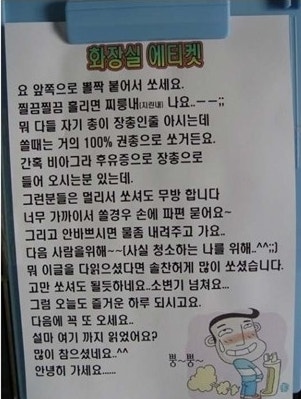 화장실 에티켓
요 앞쪽으로 뽈짝 붙어서 쏘세요.
찔끔찔끔 흘리면 찌룽내(지린내) 나요..ㅡㅡ;;
뭐 다들 자기 총이 장총인줄 아시는데
쏠때는 거의 100% 권총으로 쏘거든요.
간혹 비아그라 후유증으로 장총으로
들어 오시는분 있는데.
그런분들은 멀리서 쏘셔도 무방 합니다
너무 가까이서 쏠경우 손에 파편 묻어요~
그리고 안바쁘시면 물좀 내려주고 가요..
다음 사람을위해~~(사실 청소하는 나를 위해..^^;;)
뭐 이글을 다읽으셨다면 솔찬허게 많이 쏘셨습니다.
고만 쏘셔도 될듯하네요..소변기 넘쳐요...
그럼 오늘도 즐거운 하루 되시고요.
다음에 꼭 또 오세요..
설마 여기 까지 읽었어요?
많이 참으셨네요..^^
안녕히 가세요......
뽕~뽕~